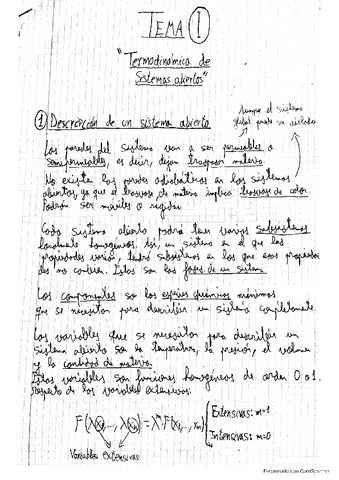 TEMA 1
"Termodinámica de
Sistemas abiertos"
Aunque el sistema
global puede ser aislado
① Descripción de un sistema abierto
Las paredes del sistema van a ser permeables o
semipermeables, es decir, dejan traspasar materia.
No existen las paredes adiabáticas en los sistemas
abiertos, ya que el trasvase de materia implica trasvase de calor.
Podrán ser móviles o rígidas.
Cada sistema abierto podrá tener varios subsistemas
localmente homogéneos. Así, un sistema en el que las
propiedades varían, tendrá subsistemas en los que esas propiedades
no cambian. Estas son las fases de un sistema.
Los componentes son las especies químicas mínimas
que se necesitan para describir un sistema completamente.
Las variables que se necesitan para describir un
sistema abierto son la temperatura, la presión, el volumen
y la cantidad de materia.
Estas variables son funciones homogéneas de orden 0 o 1
respecto de las variables extensivas:
F(λx₁, ..., λxₙ) = λᵐ F(x₁, ..., xₙ)
Extensivas: m=1
Intensivas: m=0
Variables extensivas
Escaneado con CamScanner